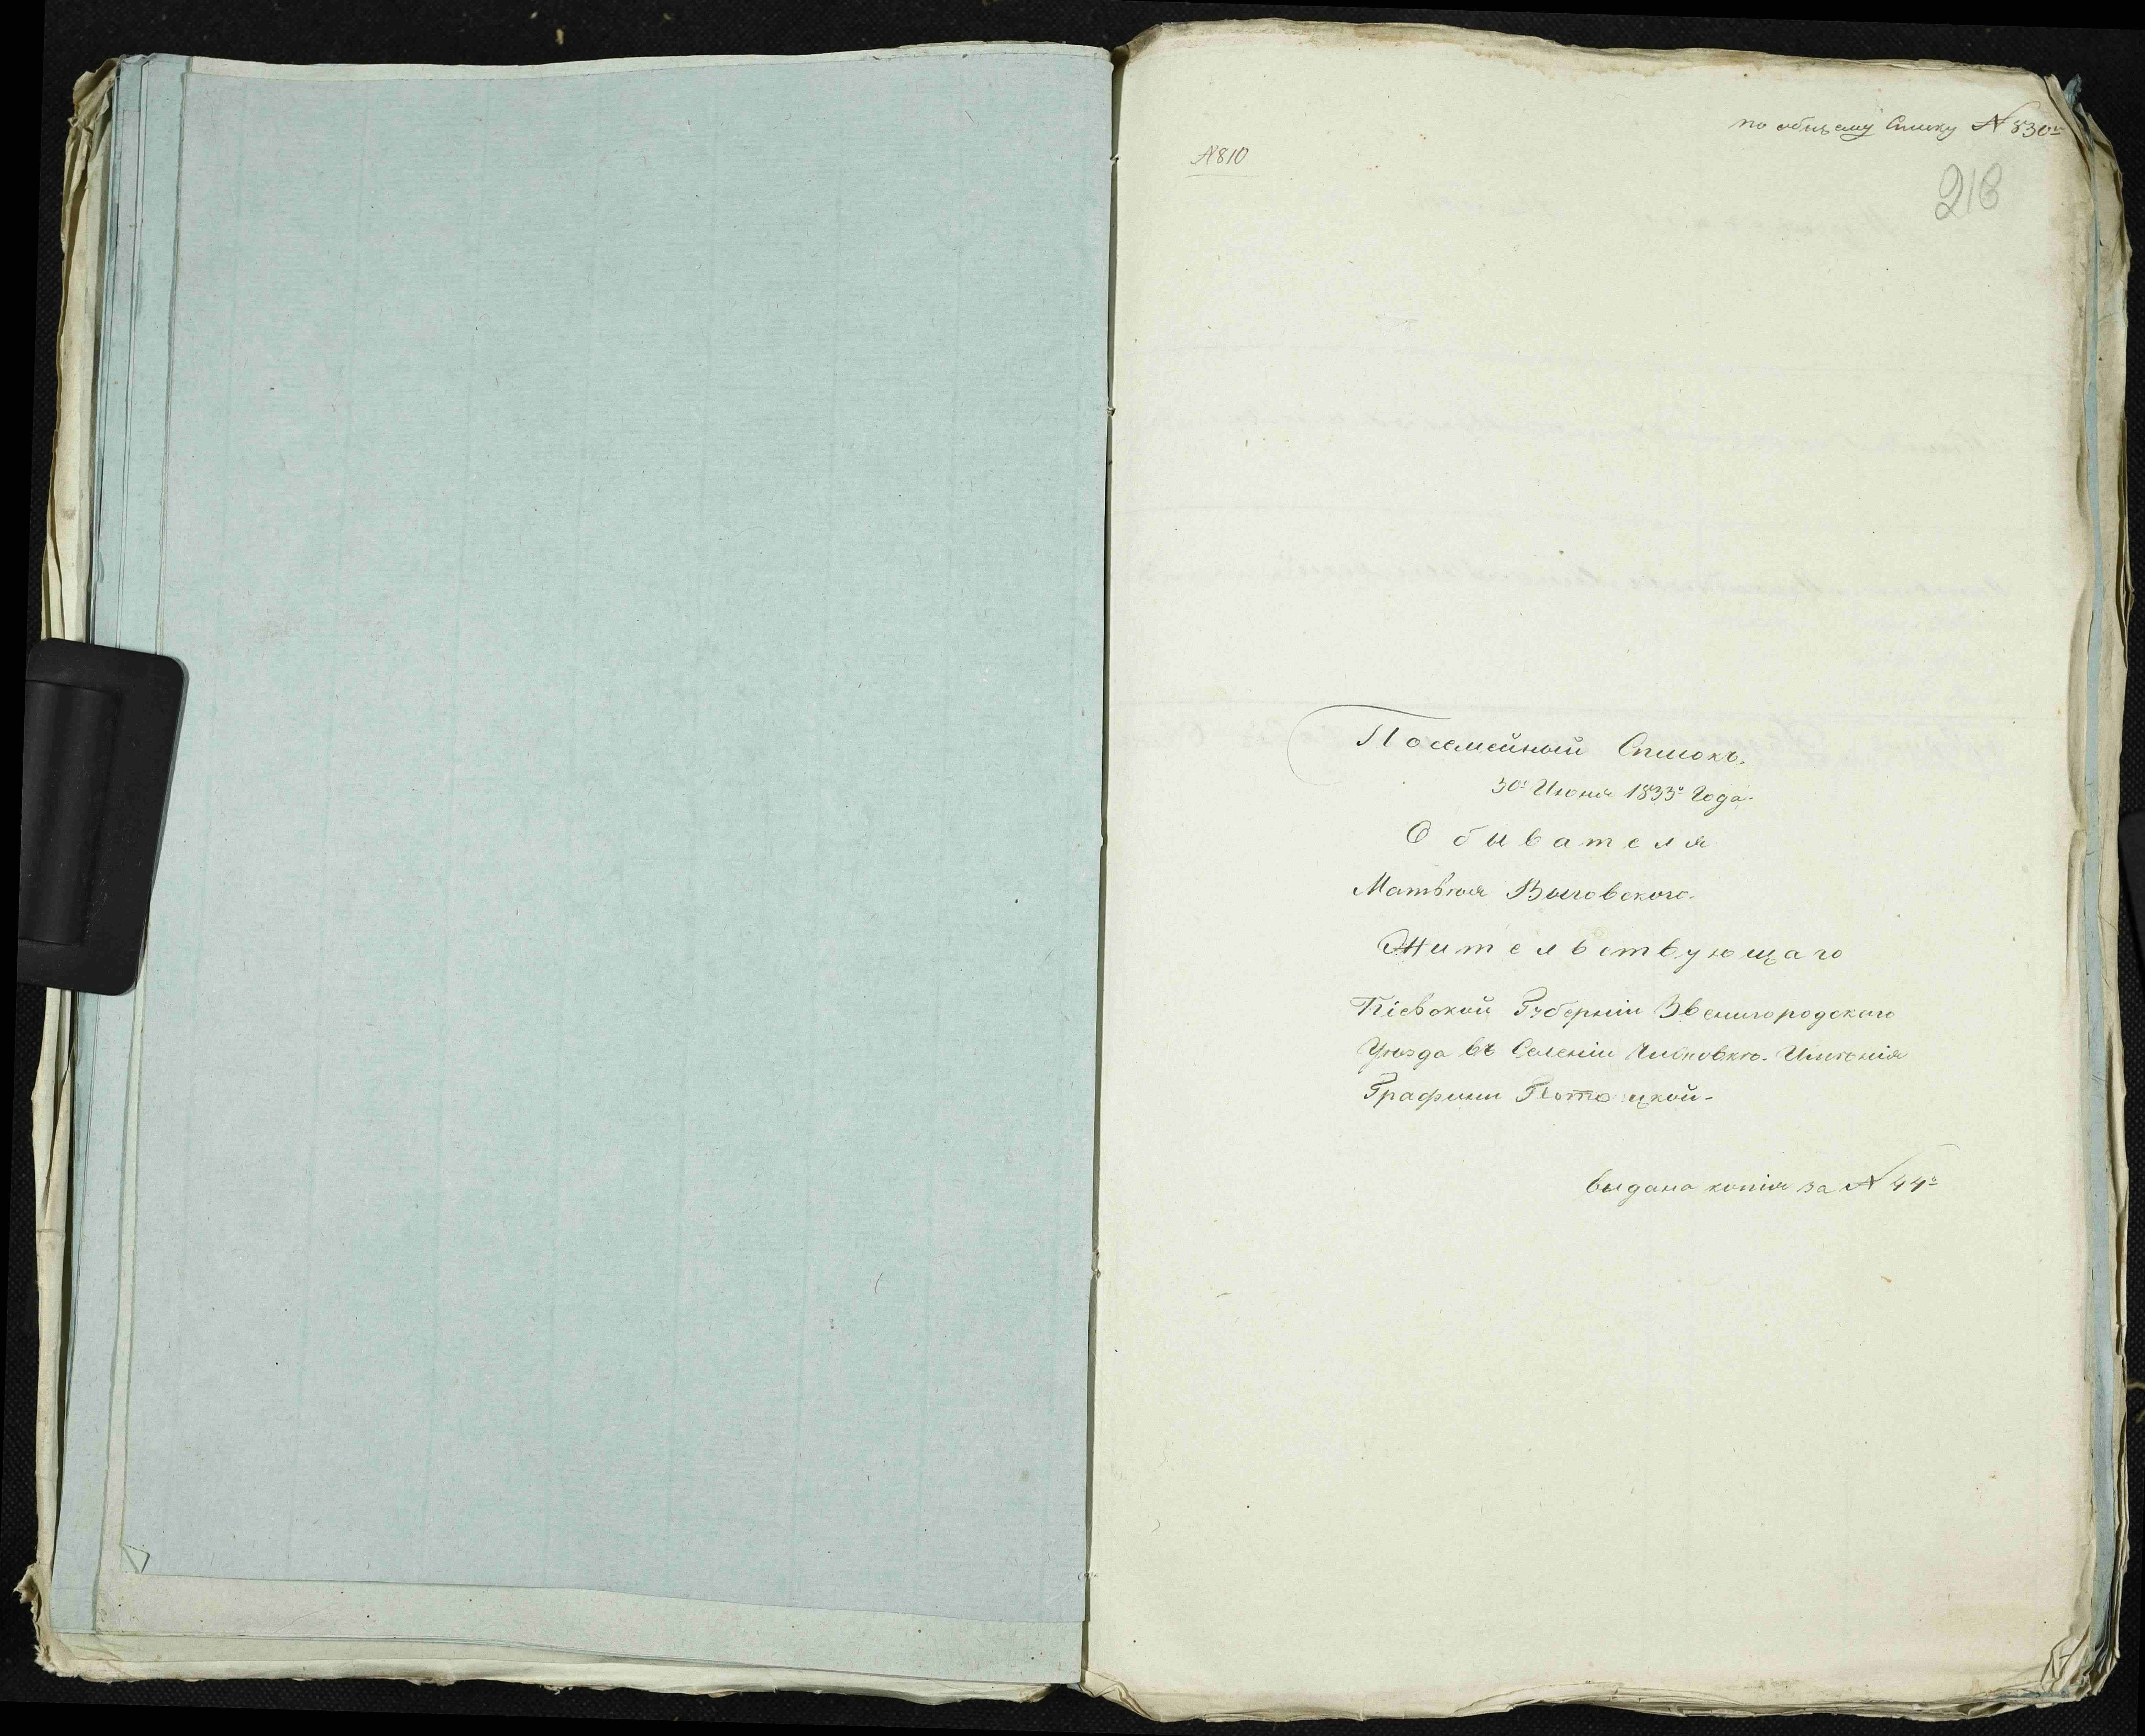 по общему Списку № 830й
№ 810
218
Посемейный Списокъ.
30го Июня 1833го Года.
Обывателя
Матвѣя Выговскаго.
Жительствующаго
Кіевской Губерніи Звенигородскаго
Уѣзда въ Селеніи Имѣнія
Графини Потоцкой.
Выдана копія за № 44й